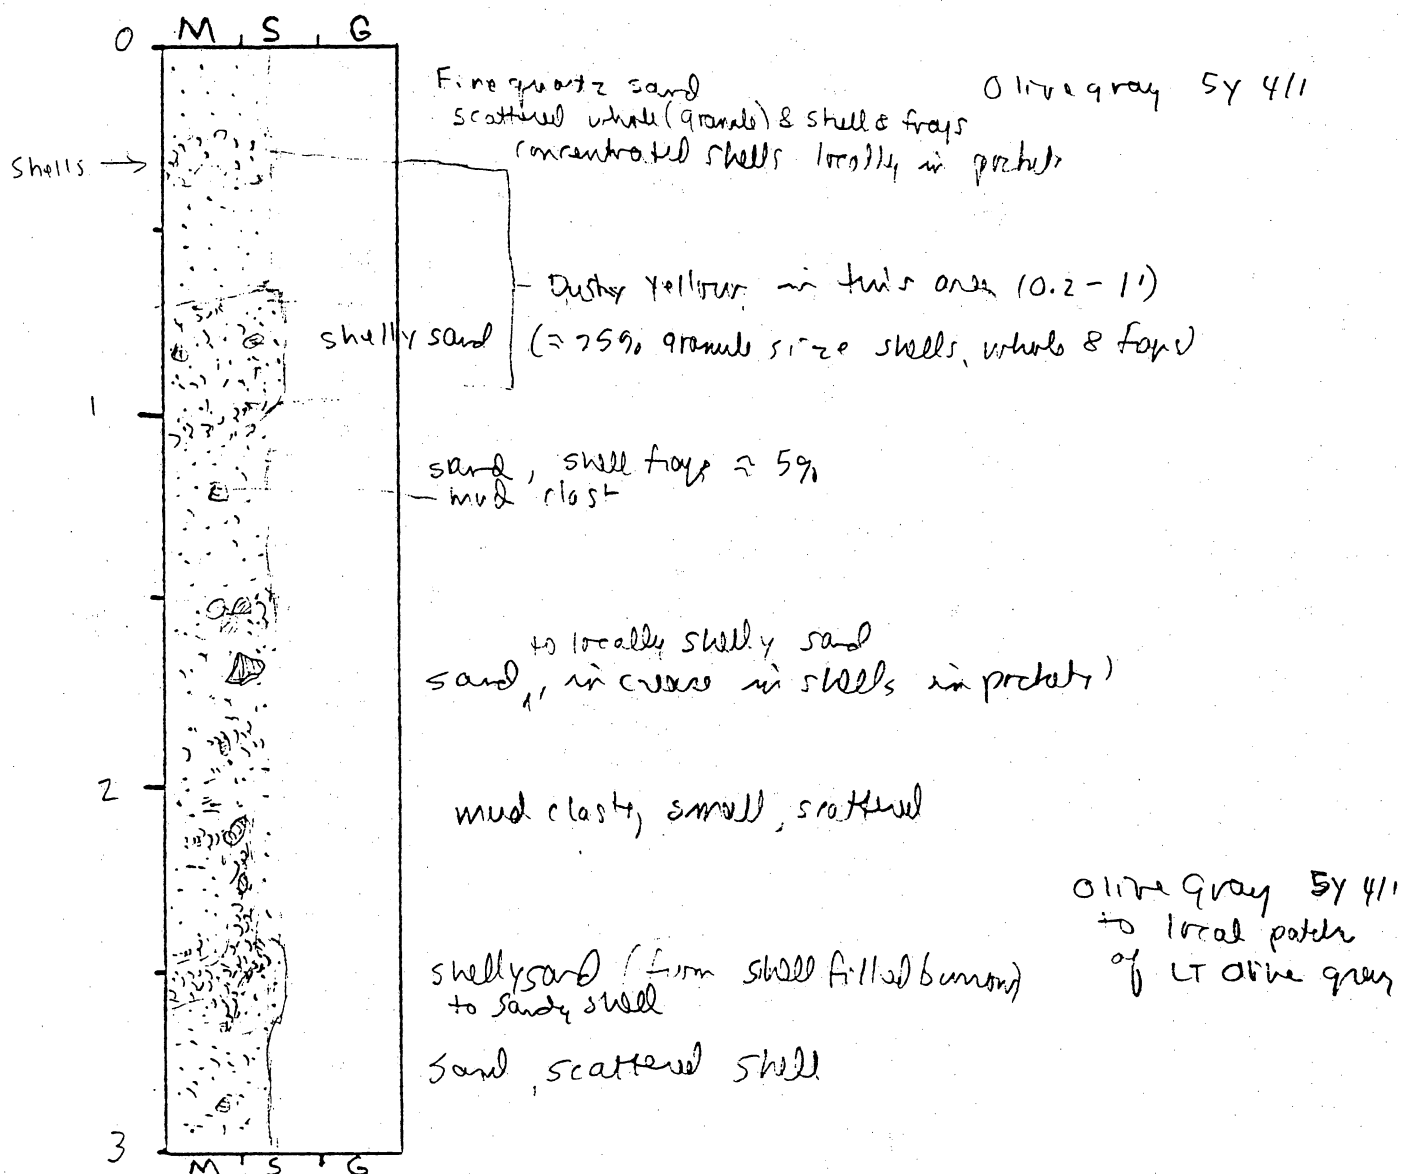 0 M S G
Fine quartz sand
Olive gray 5Y 4/1
scattered whole (granule) & shell & frags
concentrated shells locally in pockets
Shells →
Dusky Yellow in this area (0.2 - 1')
shelly sand (≈ 25% granule size shells, whole & frags)
1
sand, shell frags ≈ 5%
mud clast
to locally shelly sand
sand, increase in shells in pockets)
2
mud clasts, small, scattered
Olive Gray 5Y 4/1
to local patches
of LT Olive gray
shelly sand (from shell filled burrow)
to sandy shell
sand, scattered shell
3
M S G